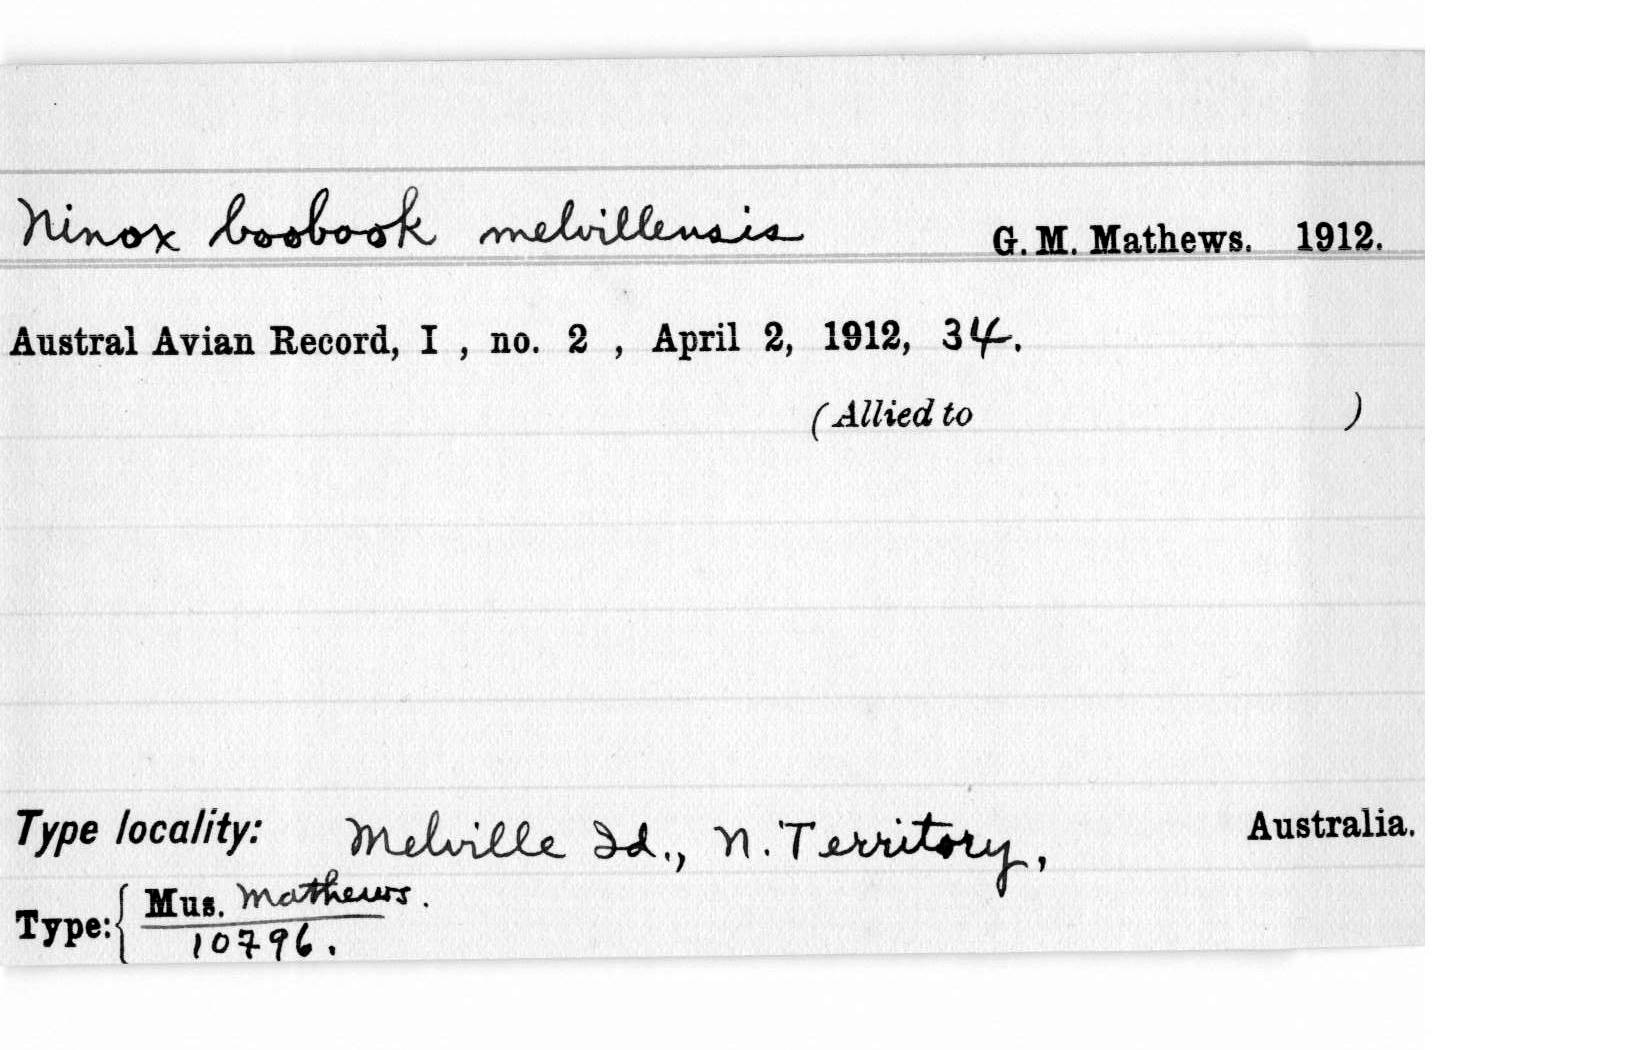 Ninox boobook melvillensis G. M. Mathews. 1912.
Austral Avian Record, I , no. 2 , April 2, 1912, 34.
(Allied to )
Type locality: Melville Id., N. Territory, Australia.
Type: { Mus. Mathews.
10796.